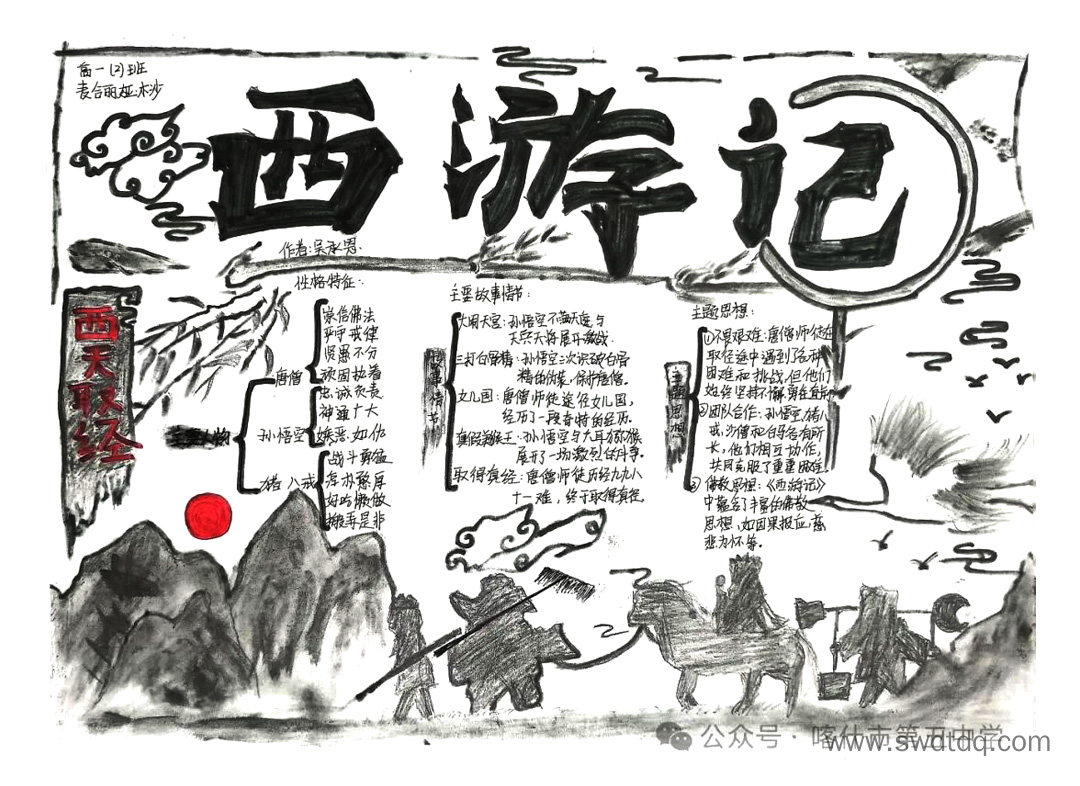 高一(2)班
西游记
作者:吴承恩.
西天取经
性格特征:
主要人物
唐僧
崇信佛法
严守戒律
贤愚不分
顽固执着
孙悟空
忠诚负责
神通广大
嫉恶如仇
战斗勇猛
猪八戒
好吃懒做
搬弄是非
主要故事情节:
故事情节
大闹天宫:孙悟空不满天庭,与
天兵天将展开激战.
三打白骨精:孙悟空三次识破白骨
精的伪装,保护唐僧.
女儿国:唐僧师徒途径女儿国,
经历了一段奇特的经历.
真假美猴王:孙悟空与六耳猕猴
展开了一场激烈的斗争.
取得真经:唐僧师徒历经九九八
十一难,终于取得真经.
主题思想:
主题思想
①不畏艰难:唐僧师徒在
取经途中遇到了各种
困难和挑战,但他们
始终坚持不懈勇往直前
②团队合作:孙悟空,猪八
戒,沙僧和白马各有所
长,他们相互协作,
共同克服了重重困难.
③佛教思想:《西游记》
中蕴含了丰富的佛教
思想,如因果报应,慈
悲为怀等.
公众号·喀什市第五中学
www.swdtdq.com